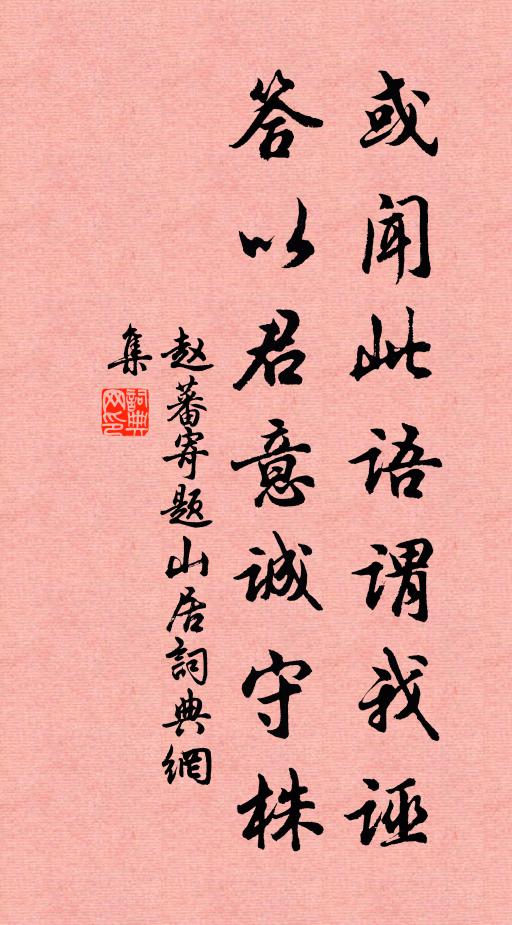 或闻此语谓我诬
答以君意诚守株
赵蕃寄题山居詞典網
集
詞典
网印